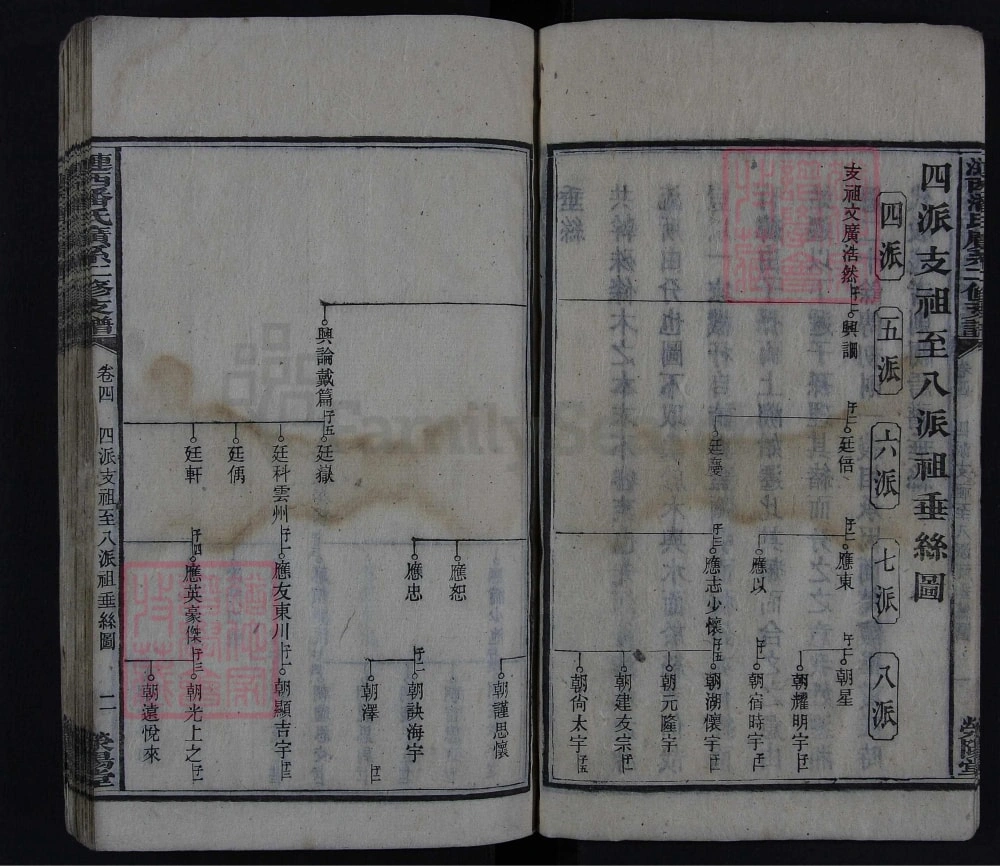 四派支祖至八派祖垂絲圖
四派
五派
六派
七派
八派
支祖文廣浩然
子二
興調
子二
廷倍
子二
應東
子二
朝星
朝耀明宇子二
應以
子一
朝宿時宇子一
廷慶
子三
應志少懷
子五
朝湖懷宇子二
朝元隆宇
朝建友宗子一
朝尙太宇子五
朝謹思懷
應恕
應忠
子二
朝訣海宇
朝澤子一
興論戴篇
子五
廷嶽
廷科雲州
子一
應友東川
子一
朝顯吉宇子三
廷偶
廷軒
子四
應英豪傑
子三
朝光上之子一
朝遠悅來
漣西潘氏廣系二修支譜
卷四
四派支祖至八派祖垂絲圖
二
滎陽堂
FamilySearch